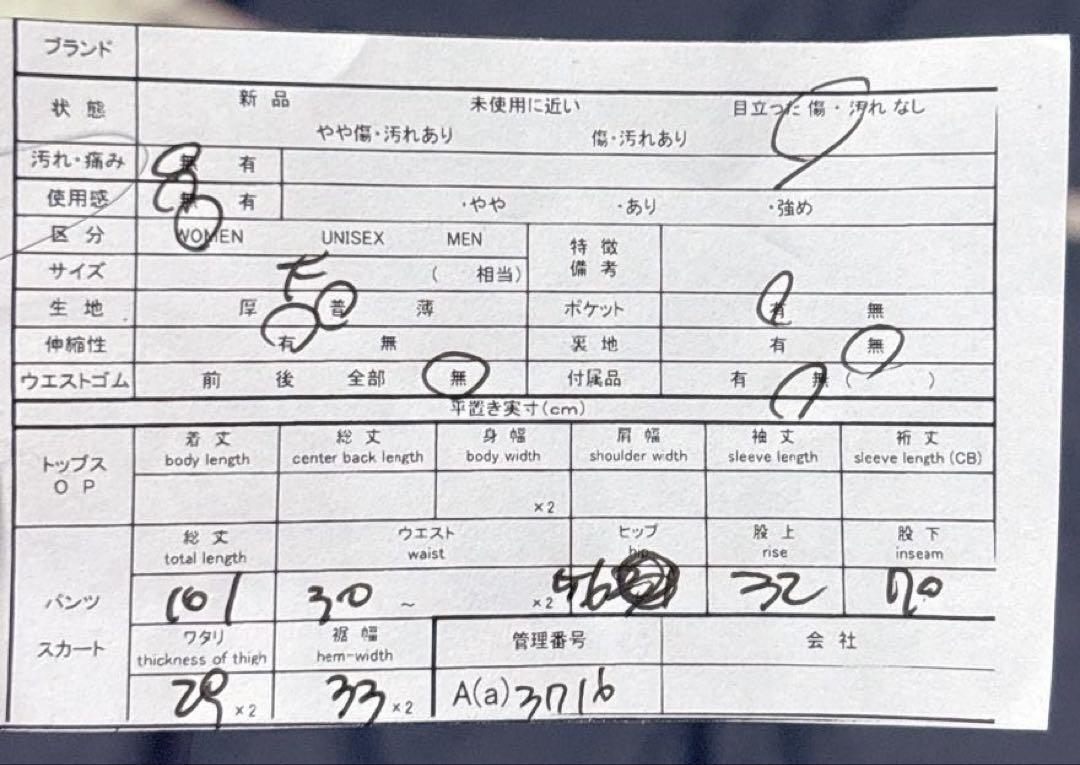 ブランド
状態 新品 未使用に近い 目立った傷・汚れなし
やや傷・汚れあり 傷・汚れあり
汚れ・痛み 無 有
使用感 無 有 ・やや ・あり ・強め
区分 WOMEN UNISEX MEN 特徴備考
サイズ ( 相当)
生地 厚 普 薄 ポケット 有 無
伸縮性 有 無 裏地 有 無
ウエストゴム 前 後 全部 無 付属品 有 無 ( )
平置き実寸(cm)
トップス OP 着丈 総丈 身幅 肩幅 袖丈 裄丈
body length center back length body width shoulder width sleeve length sleeve length (CB)
×2
総丈 ウエスト ヒップ 股上 股下
total length waist hip rise inseam
パンツ 101 30 ~ ×2 32 70
スカート ワタリ 裾幅 管理番号 会社
thickness of thigh hem-width
29 ×2 33 ×2 A(a)3716